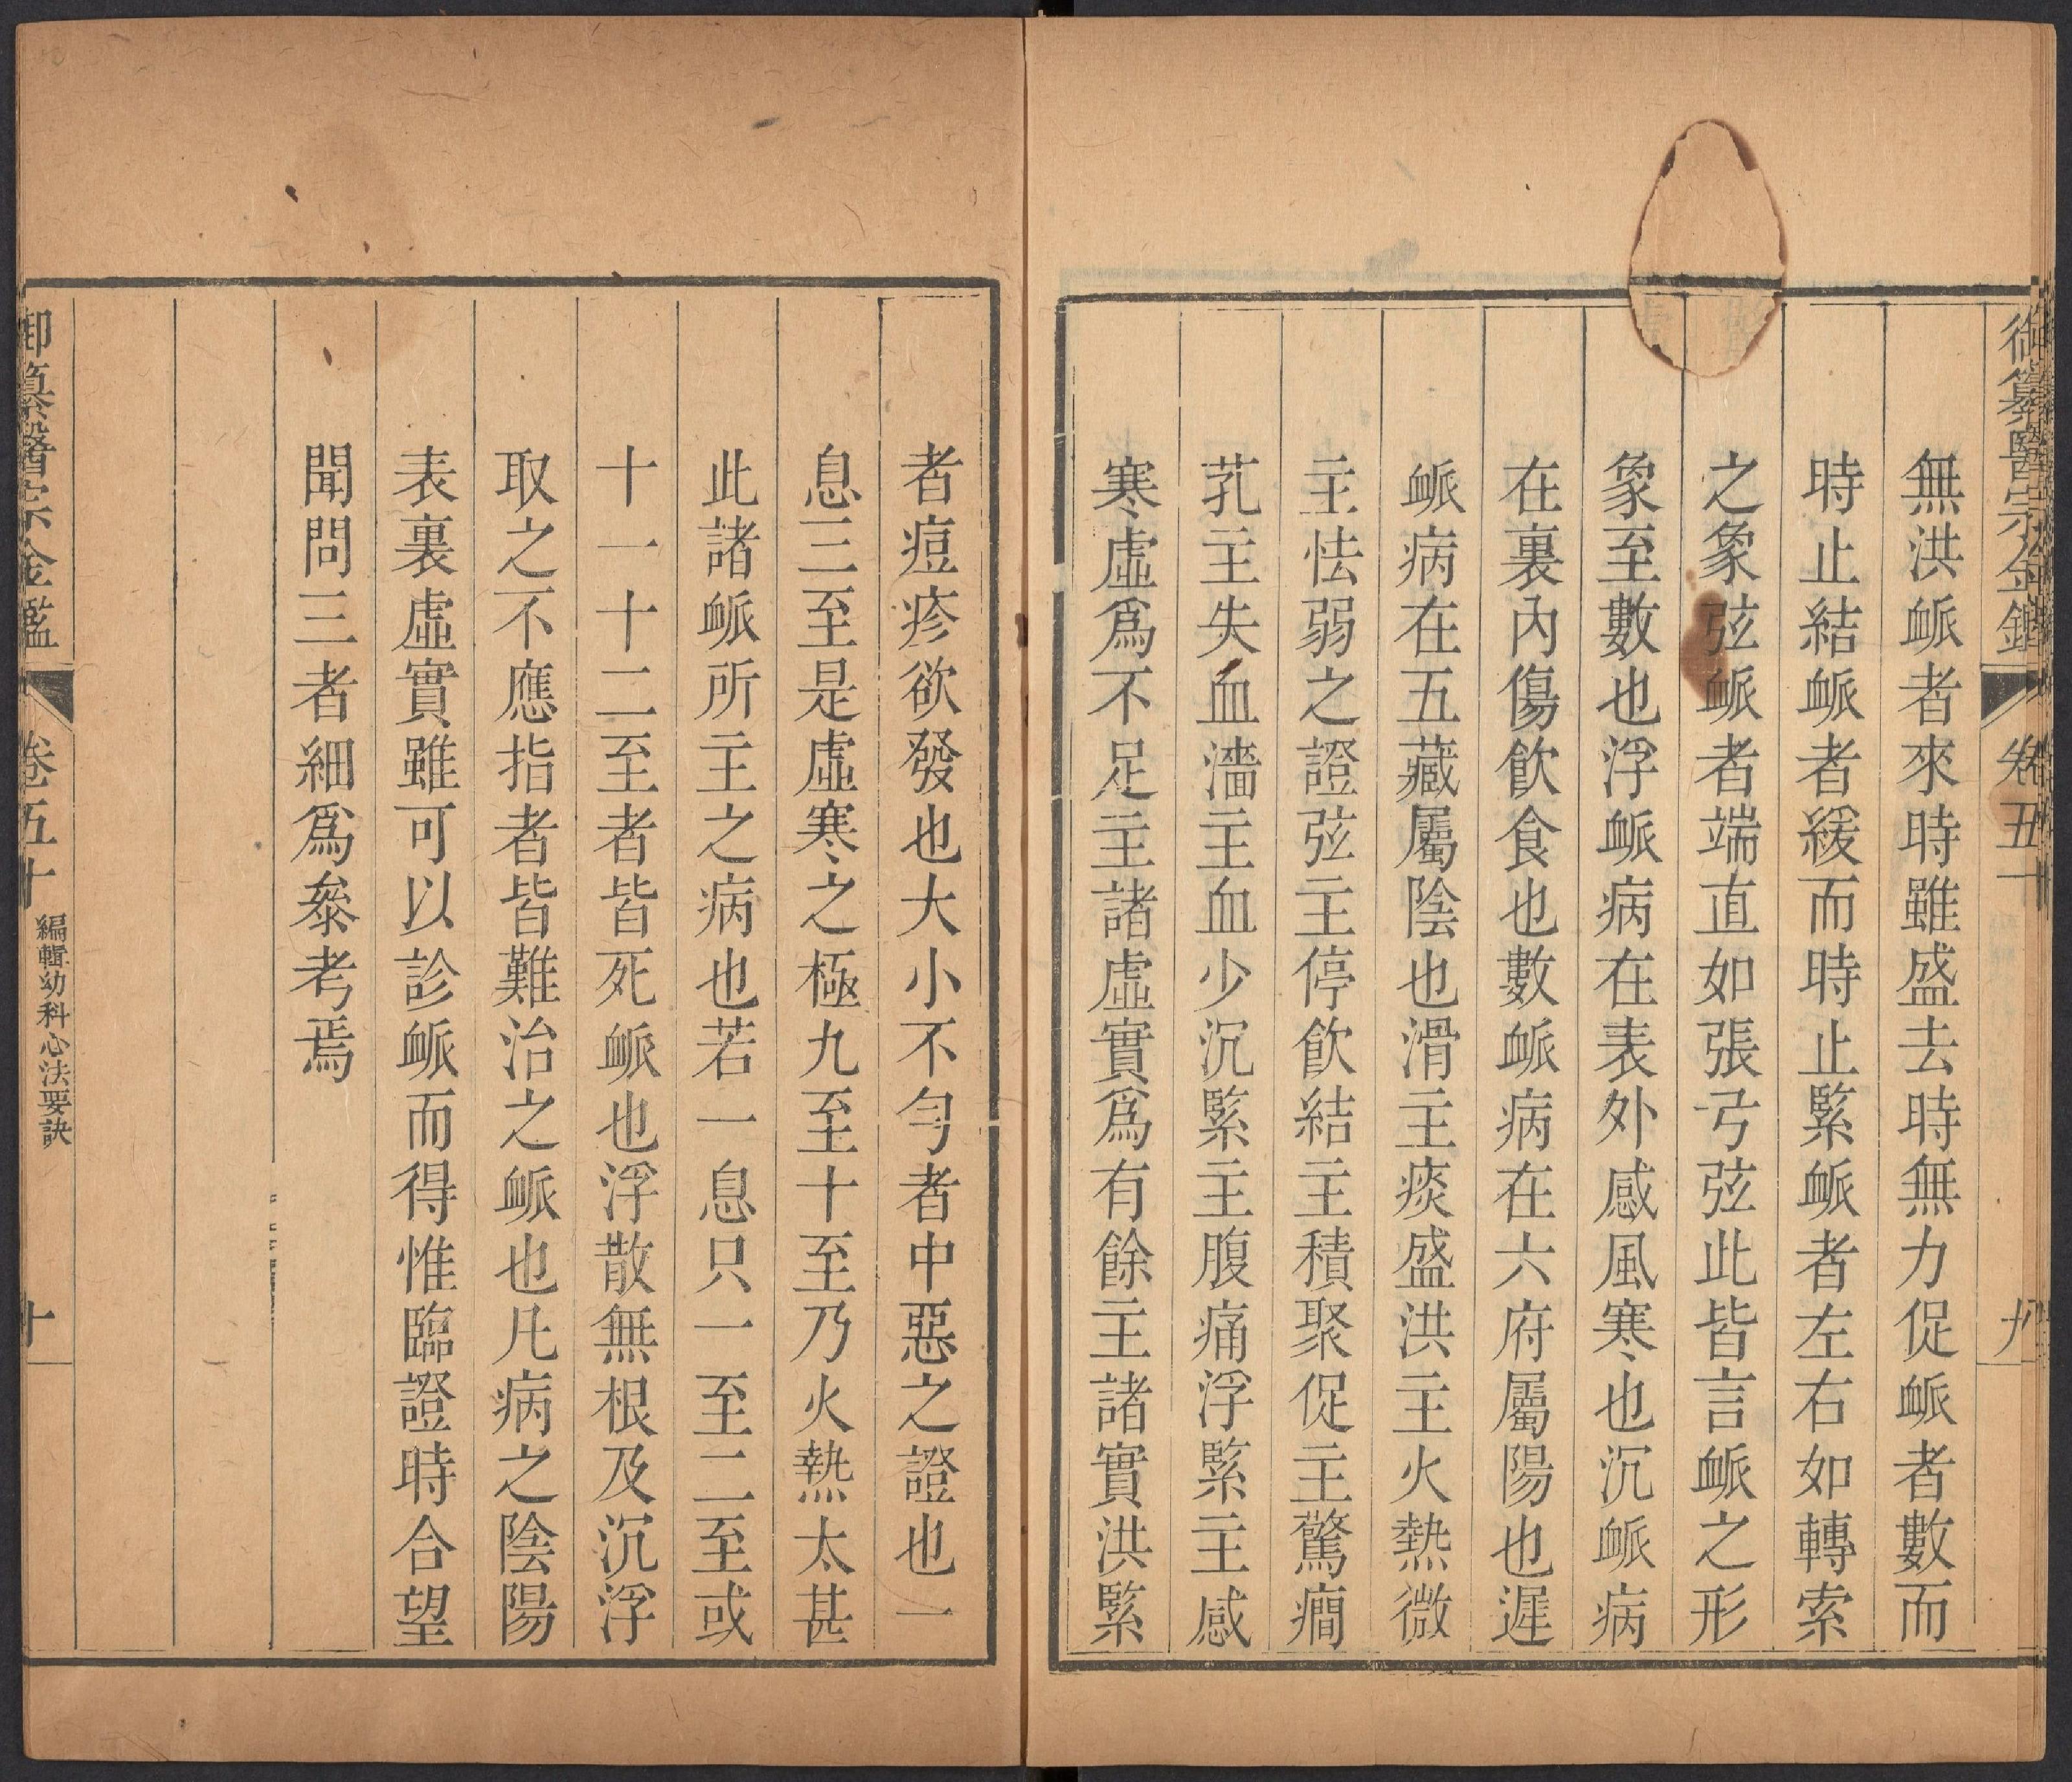 御纂醫宗金鑑 卷五十 九
無洪䘑者來時雖盛去時無力促䘑者數而
時止結䘑者緩而時止緊䘑者左右如轉索
之象弦䘑者端直如張弓弦此皆言䘑之形
象至數也浮䘑病在表外感風寒也沉䘑病
在裏內傷飮食也數䘑病在六府屬陽也遲
䘑病在五藏屬陰也滑主痰盛洪主火熱微
主怯弱之證弦主停飮結主積聚促主驚癇
芤主失血濇主血少沉緊主腹痛浮緊主感
寒虛爲不足主諸虛實爲有餘主諸實洪緊
者痘疹欲發也大小不勻者中惡之證也一
息三至是虛寒之極九至十至乃火熱太甚
此諸䘑所主之病也若一息只一至二至或
十一十二至者皆死䘑也浮散無根及沉浮
取之不應指者皆難治之䘑也凡病之陰陽
表裏虛實雖可以診䘑而得惟臨證時合望
聞問三者細爲叅考焉
御纂醫宗金鑑 卷五十 編輯幼科心法要訣 十